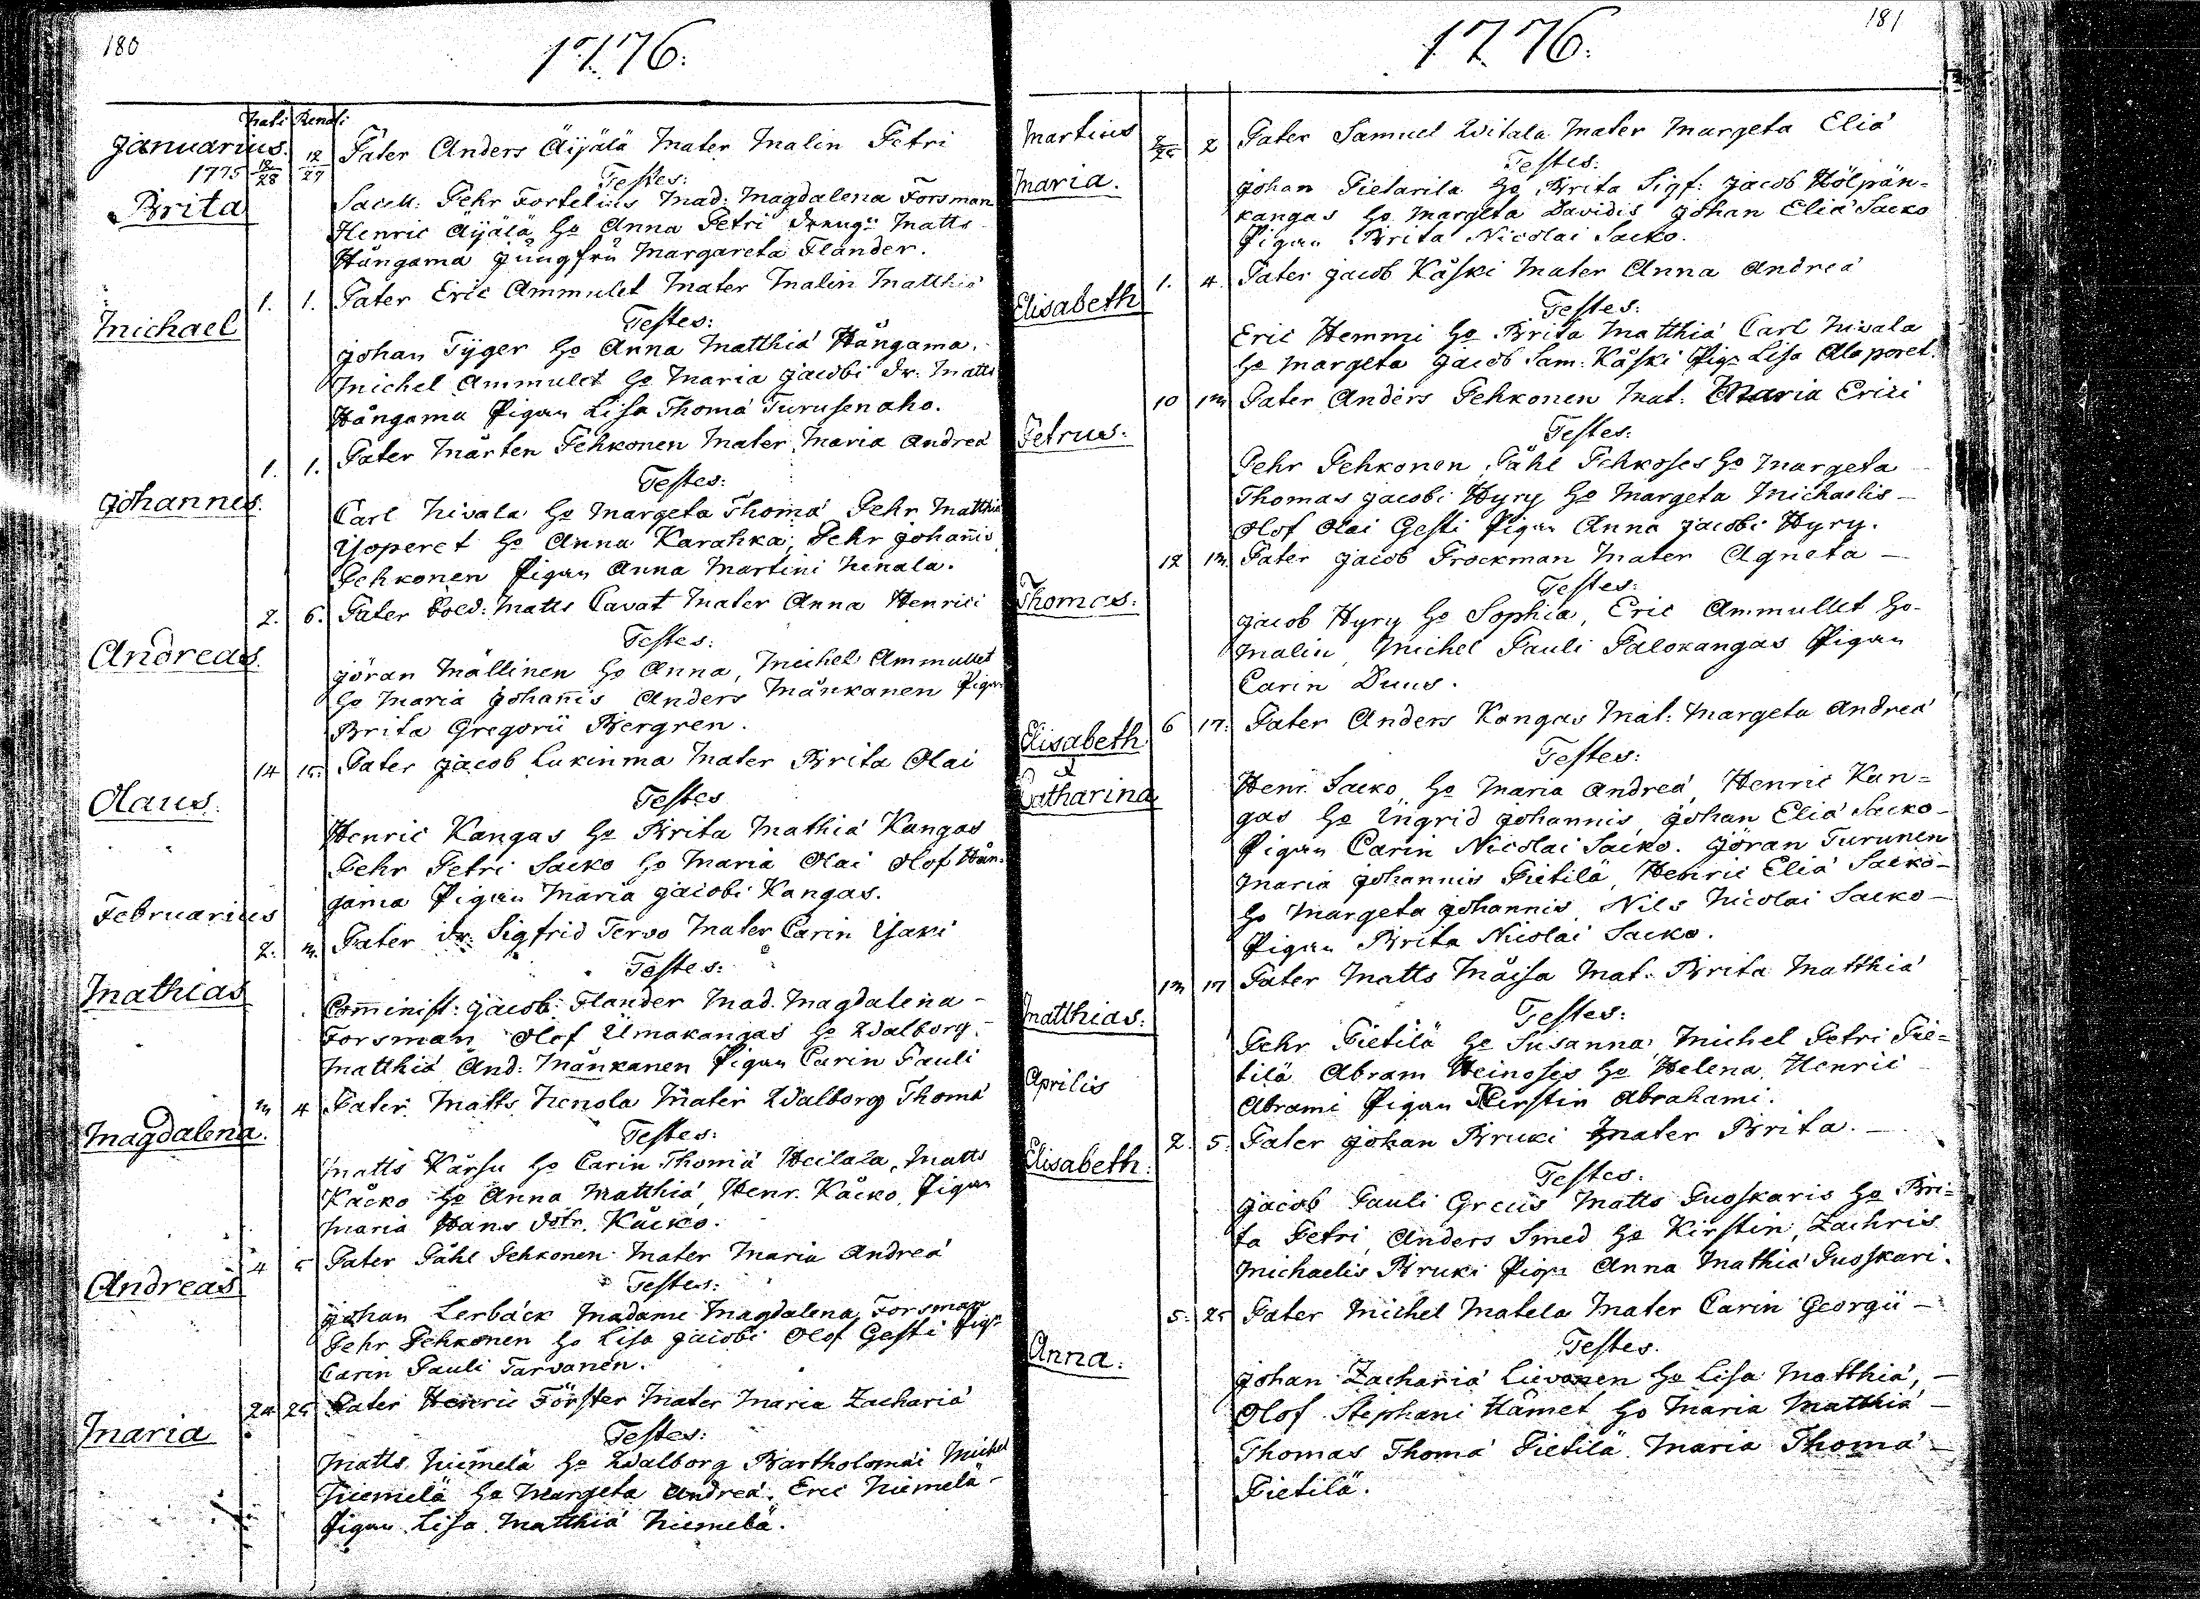 180
1776.
Nati Renati
Januarius.
1775 12/28 12/29 Pater Anders Äijälä Mater Malin Petri
Brita
Testes:
Sacell: Pehr Fortelius Mad: Magdalena Forsman
Henric Äijälä H:o Anna Petri Dreng: Matts
Hångama Jungfru Margareta Flander.
Michael 1. 1. Pater Eric Ammulet Mater Malin Matthiä
Testes:
Johan Tyger H:o Anna Matthiä Hångama.
Michel Ammulet H:o Maria Jacobi Dr: Matts
Hångama Pigan Lisa Thomä Turusenaho.
Johannes. 1. 1. Pater Mårten Pehkonen Mater Maria Andreä
Testes:
Carl Nivala H:o Margeta Thomä Pehr Matthiä
Yoperet H:o Anna Karahka, Pehr Johañis
Pehkonen Pigan Anna Martini
Andreas. 2. 6. Pater Matts Cavat Mater Anna Henrici
Testes:
Jöran Mällinen H:o Anna, Michel Ammullet
H:o Maria Johañis Anders Månkanen Pigan
Brita Gregorii Bergren.
Olaus. 14 15. Pater Jacob Lukinma Mater Brita Olai
Testes
Henric Kangas H:o Brita Mathiä Kangas
Pehr Petri Sacko H:o Maria Olai Olof Hån-
gama Pigan Maria Jacobi Kangas.
Februarius
Mathias 2. 3. Pater Dr: Sigfrid Tervo Mater Carin Yjaki
Testes:
Com̃inist: Jacob Flander Mad. Magdalena -
Forsman Olof Ulmakangas H:o Walborg.
Matthiä And: Månkanen Pigan Carin Pauli
Magdalena. 3 4 Pater Matts Mater Walborg Thomä
Testes:
Matts Kårsu H:o Carin Thomä Heilala, Matts
Kåcko H:o Anna Matthiä, Henr. Kåcko, Pigan
Maria Hans dotr. Kåcko.
Andreas 4 5 Pater Påhl Pehkonen Mater Maria Andreä
Testes:
Johan Lerbäck Madame Magdalena Forsman
Pehr Pehkonen H:o Lisa Jacobi Olof Gesti Pig:
Carin Pauli Tarvanen.
Maria 24 25 Pater Henric Förster Mater Maria Zachariä
Testes:
Matts Niemelä H:o Walborg Bartholomäi Michel
Niemelä H:o Margeta Andreä. Eric Niemelä -
Pigan Lisa Matthiä Niemelä.
181
1776.
Martius 2/25 2 Pater Samuel Witala Mater Margeta Eliä
Maria.
Testes:
Johan Pietarila H:o Brita Sigf: Jacob Hölpän-
kangas H:o Margeta Davidis Johan Eliä Sacko
Pigan Brita Nicolai Sacko.
Elisabeth 1. 4. Pater Jacob Kåski Mater Anna Andreä
Testes:
Eric Hemmi H:o Brita Matthiä Carl Nivala
H:o Margeta Jacob Sam: Kåski Pig: Lisa Alaporet.
Petrus. 10 13 Pater Anders Pehkonen Mat: Maria Erici
Testes:
Pehr Pehkonen, Påhl Pehkoses H:o Margeta
Thomas Jacobi Hyry H:o Margeta Michaelis -
Olof Olai Gesti Pigan Anna Jacobi Hyry.
Thomas. 12 13. Pater Jacob Frockman Mater Agneta -
Testes:
Jacob Hyry H:o Sophia, Eric Ammullet H:o
Malin, Michel Pauli Palokangas Pigan
Carin Duus.
Elisabeth & Catharina 6 17. Pater Anders Kangas Mat: Margeta Andreä
Testes:
Henr. Sacko, H:o Maria Andreä, Henric Kan-
gas H:o Ingrid Johannis, Johan Eliä Sacko -
Pigan Carin Nicolai Sacko. Jöran Turunen
Maria Johannis Pietilä, Henric Eliä Sacko -
H:o Margeta Johannis, Nils Nicolai Sacko -
Pigan Brita Nicolai Sacko.
Matthias: 13 17 Pater Matts Måisa Mat: Brita Matthiä
Testes:
Pehr Pietilä H:o Susanna, Michel Petri Pie-
tilä Abram Heinoses H:o Helena, Henric
Abrami Pigan Kirstin Abrahami.
Aprilis
Elisabeth: 2. 5. Pater Johan Bruki Mater Brita. -
Testes.
Jacob Pauli Greus Matts Puoskaris H:o Bri-
ta Petri, Anders Smed H:o Kirstin, Zachris
Michaelis Bruki Pigan Anna Mathiä Puoskari.
Anna. 5. 25 Pater Michel Matela Mater Carin Georgii -
Testes.
Johan Zachariä Lievonen H:o Lisa Matthiä, -
Olof Stephani Hämet H:o Maria Matthiä -
Thomas Thomä Pietilä. Maria Thomä -
Pietilä.